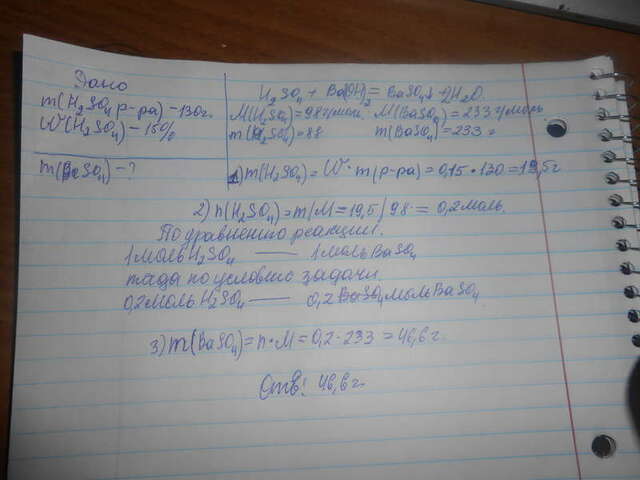 Дано
m(H₂SO₄ р-ра) - 130г.
W(H₂SO₄) - 15%
m(BaSO₄) - ?
H₂SO₄ + Ba(OH)₂ = BaSO₄↓ + 2H₂O.
M(H₂SO₄) = 98г/моль. M(BaSO₄) = 233 г/моль
m(H₂SO₄) = 88 m(BaSO₄) = 233 г
1) m(H₂SO₄) = W · m(р-ра) = 0,15 · 130 = 19,5г
2) n(H₂SO₄) = m/M = 19,5/98 = 0,2моль.
По уравнению реакции.
1моль H₂SO₄ — 1моль BaSO₄
тогда по условию задачи
0,2моль H₂SO₄ — 0,2 моль BaSO₄
3) m(BaSO₄) = n·M = 0,2·233 = 46,6г.
Отв: 46,6г.